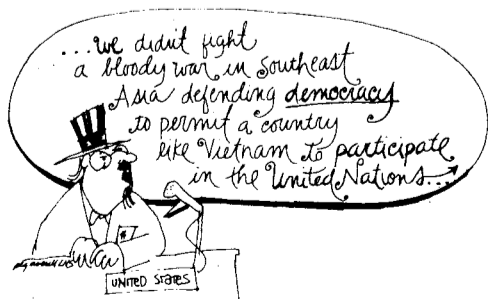 ...we didn't fight
a bloody war in Southeast
Asia defending democracy
to permit a country
like Vietnam to participate
in the United Nations...
#7
UNITED STATES